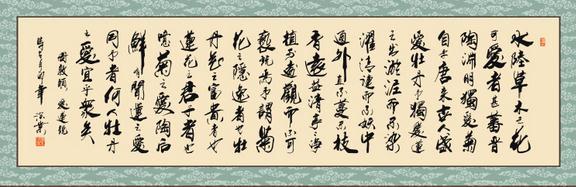 水陸草木之花
可愛者甚蕃晉
陶淵明獨愛菊
自李唐來世人盛
愛牡丹予獨愛蓮
之出淤泥而不染
濯清漣而不妖中
通外直不蔓不枝
香遠益清亭亭淨
植可遠觀而不可
褻玩焉予謂菊
花之隱逸者也牡
丹花之富貴者也
蓮花之君子者也
噫菊之愛陶后
鮮有聞蓮之愛
同予者何人牡丹
之愛宜乎眾矣
周敦頤 愛蓮說